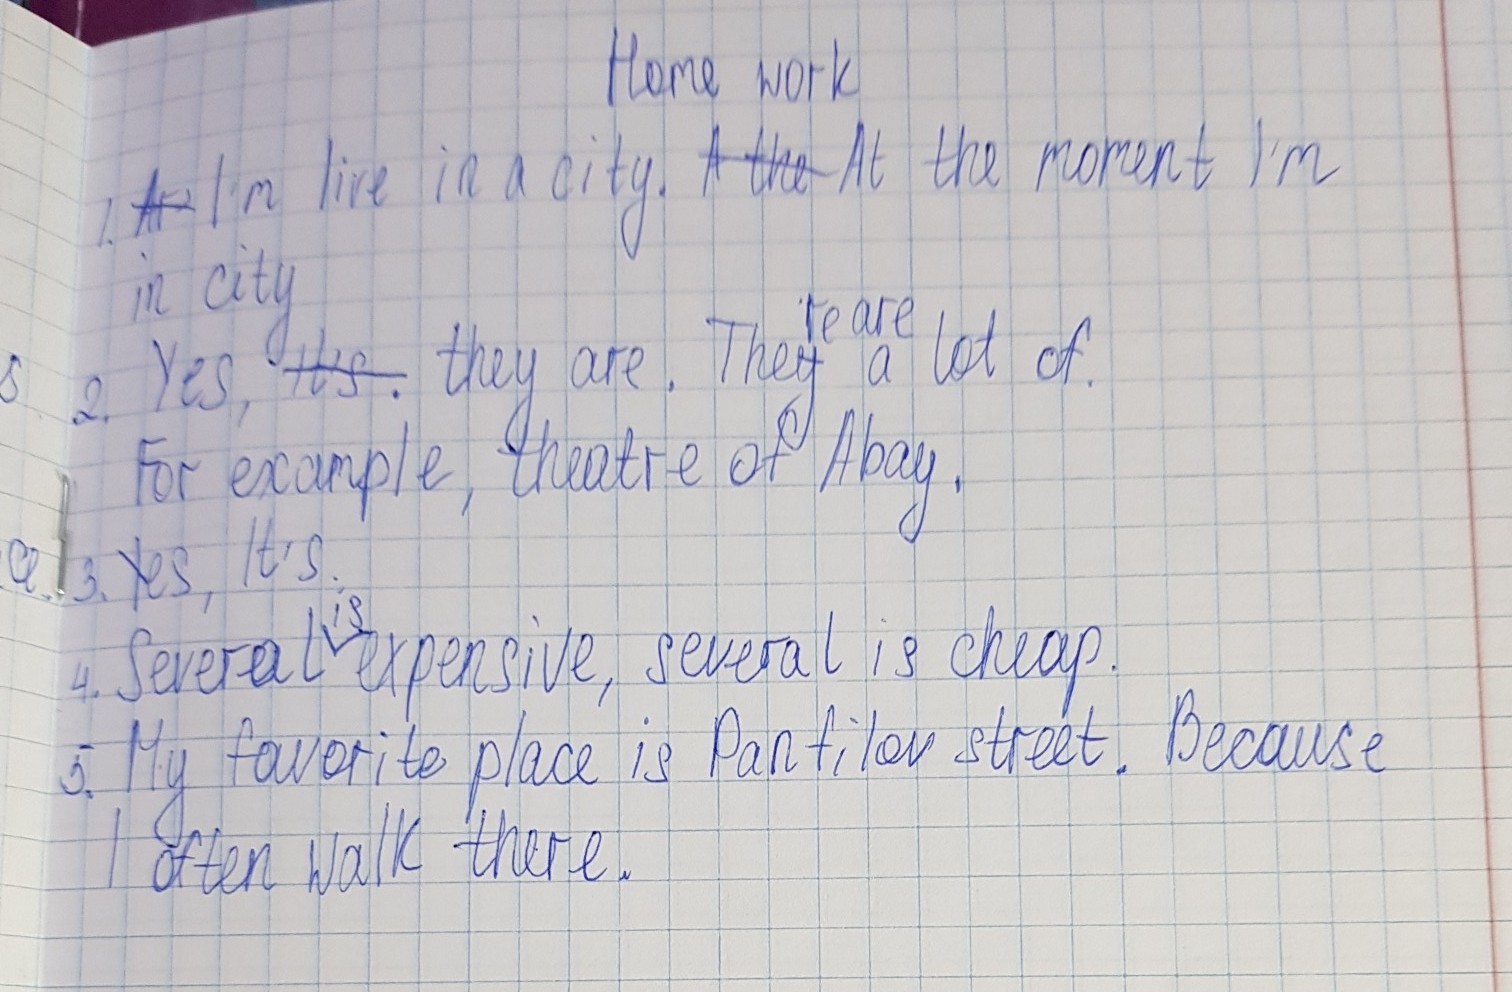 Home work
1. I'm live in a city. A the At the moment I'm
in city
2. Yes, It's. they are. There are a lot of.
For example, theatre of Abay.
3. Yes, It's.
4. Several is expensive, several is cheap.
5. My favorite place is Panfilov street. Because
I often walk there.